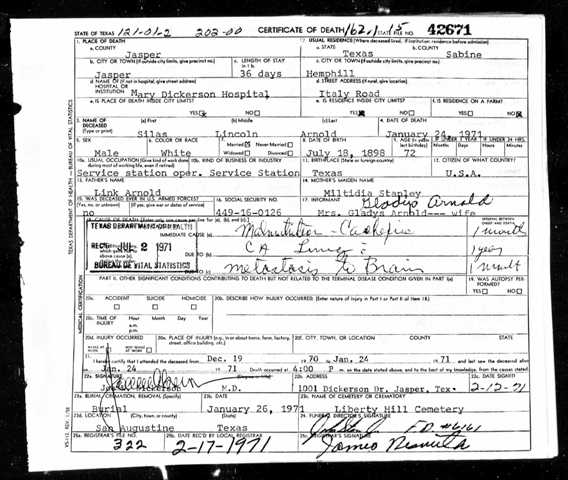 STATE OF TEXAS 121-01-2 202-00 CERTIFICATE OF DEATH 162.1-15 STATE FILE NO. 42671
1. PLACE OF DEATH 2. USUAL RESIDENCE (Where deceased lived. If institution: residence before admission)
a. COUNTY Jasper a. STATE Texas b. COUNTY Sabine
b. CITY OR TOWN (If outside city limits, give precinct no.) c. LENGTH OF STAY in 1 b. c. CITY OR TOWN (If outside city limits, give precinct no.)
Jasper 36 days Hemphill
d. NAME OF (If not in hospital, give street address) HOSPITAL OR INSTITUTION Mary Dickerson Hospital d. STREET ADDRESS (If rural, give location) Italy Road
e. IS PLACE OF DEATH INSIDE CITY LIMITS? YES NO e. IS RESIDENCE INSIDE CITY LIMITS? YES NO f. IS RESIDENCE ON A FARM? YES NO
3. NAME OF DECEASED (Type or print) (a) First (b) Middle (c) Last 4. DATE OF DEATH
Silas Lincoln Arnold January 24, 1971
5. SEX 6. COLOR OR RACE 7. Married Never Married Widowed Divorced 8. DATE OF BIRTH 9. AGE (In years last birthday) IF UNDER 1 YEAR IF UNDER 24 HRS. Months Days Hours Minutes
Male White July 18, 1898 72
10a. USUAL OCCUPATION (Give kind of work done during most of working life, even if retired) 10b. KIND OF BUSINESS OR INDUSTRY 11. BIRTHPLACE (State or foreign country) 12. CITIZEN OF WHAT COUNTRY?
Service station oper. Service Station Texas U.S.A.
13. FATHER'S NAME 14. MOTHER'S MAIDEN NAME
Link Arnold Miltidia Stanley
15. WAS DECEASED EVER IN U.S. ARMED FORCES? 16. SOCIAL SECURITY NO. 17. INFORMANT Gladys Arnold
(Yes, no, or unknown) (If yes, give war or dates of service)
no 449-16-0126 Mrs. Gladys Arnold--- wife
18. CAUSE OF DEATH (Enter only one cause per line for (a), (b), and (c).) INTERVAL BETWEEN ONSET AND DEATH
TEXAS DEPARTMENT OF HEALTH
REC'D JUL 2 1971
BUREAU OF VITAL STATISTICS
IMMEDIATE CAUSE (a) Malnutrition - Cachexia 1 month
DUE TO (b) CA Lung 1 year
DUE TO (c) metastasis to Brain 1 month
PART II. OTHER SIGNIFICANT CONDITIONS CONTRIBUTING TO DEATH BUT NOT RELATED TO THE TERMINAL DISEASE CONDITION GIVEN IN PART I(a) 19. WAS AUTOPSY PERFORMED? YES NO
20a. ACCIDENT SUICIDE HOMICIDE 20b. DESCRIBE HOW INJURY OCCURRED. (Enter nature of injury in Part I or Part II of item 18.)
20c. TIME OF INJURY Hour Month Day Year
20d. INJURY OCCURRED WHILE AT WORK NOT WHILE AT WORK 20e. PLACE OF INJURY (e.g., in or about home, farm, factory, street, office building, etc.) 20f. CITY, TOWN, OR LOCATION COUNTY STATE
21. I hereby certify that I attended the deceased from Dec. 19 19 70 to Jan. 24 19 71. and last saw the deceased alive on
Jan. 24 19 71 Death occurred at 6:00 P m. on the date stated above, and to the best of my knowledge, from the causes stated.
22a. SIGNATURE (Degree or title) 22b. ADDRESS 22c. DATE SIGNED
Dickerson M.D. 1001 Dickerson Dr. Jasper, Tex. 2-12-71
23a. BURIAL, CREMATION, REMOVAL (Specify) 23b. DATE 23c. NAME OF CEMETERY OR CREMATORY
Burial January 26, 1971 Liberty Hill Cemetery
23d. LOCATION (City, town, or county) (State) 24. FUNERAL DIRECTOR'S SIGNATURE
San Augustine Texas F.D. #6161
25a. REGISTRAR'S FILE NO. 25b. DATE REC'D BY LOCAL REGISTRAR 25c. REGISTRAR'S SIGNATURE
322 2-17-1971
TEXAS DEPARTMENT OF HEALTH BUREAU OF VITAL STATISTICS
MEDICAL CERTIFICATION